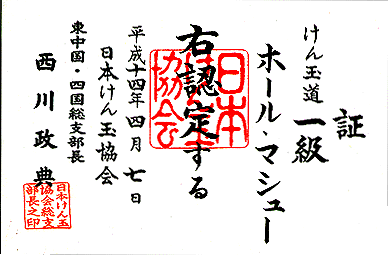 証
けん玉道 一級
ホール・マシュー
右認定する
平成十四年四月七日
日本けん玉協会
東中国・四国総支部長
西川政典
日本けん玉協会
日本けん玉
協会総支
部長之印